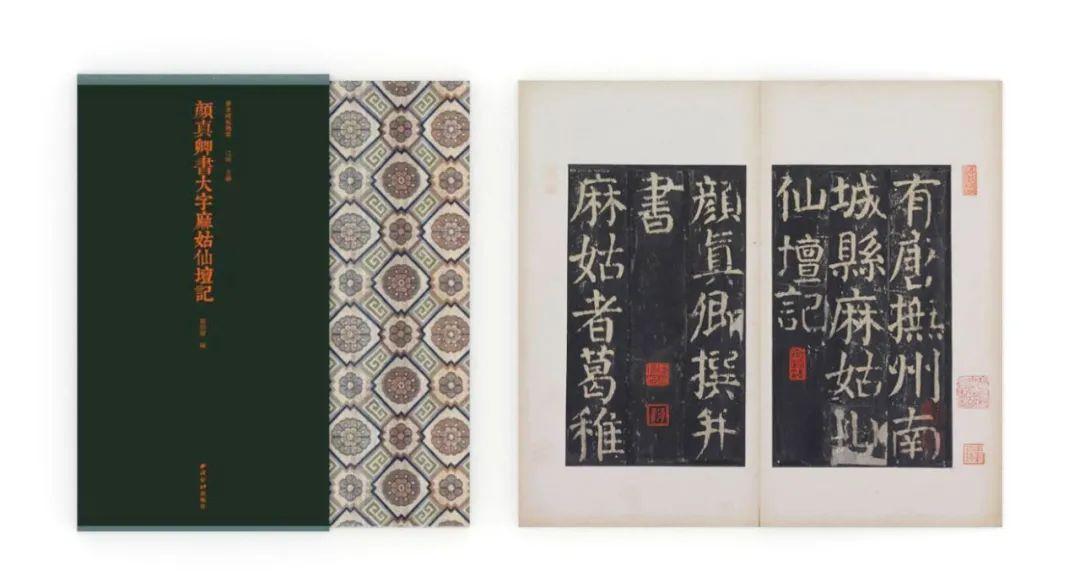 顏真卿書大字麻姑仙壇記
有唐撫州南
城縣麻姑山
仙壇記
顏眞卿撰并
書
麻姑者葛稚